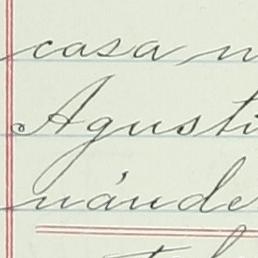 casa n
Agusti
nánde